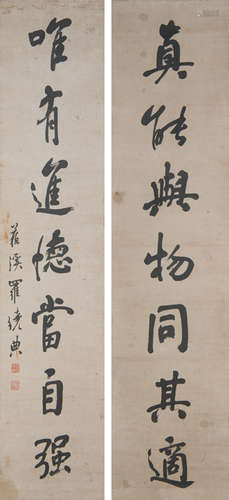 真能與物同其適
唯有進德當自强
蘇溪羅繞典